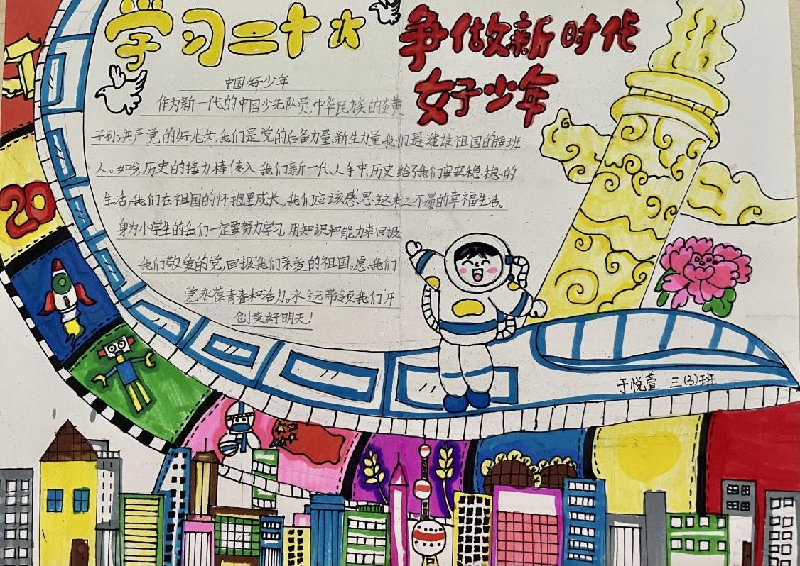 学习二十大
争做新时代
好少年
中国好少年
作为新一代的中国少先队员,中华民族的优良
子孙,共产党的好儿女,我们是党的后备力量,新生力量我们是建设祖国的接班
人。如今历史的接力棒传入我们新一代人手中,历史给了我们安稳的
生活,我们在祖国的怀抱里成长,我们应该感恩这来之不易的幸福生活
身为小学生的我们一定要努力学习,用知识和能力来回报
我们敬爱的党,回报我们亲爱的祖国。愿我们
党永葆青春和活力。永远带领我们开
创美好明天!
20
于悦萱 三(3)班